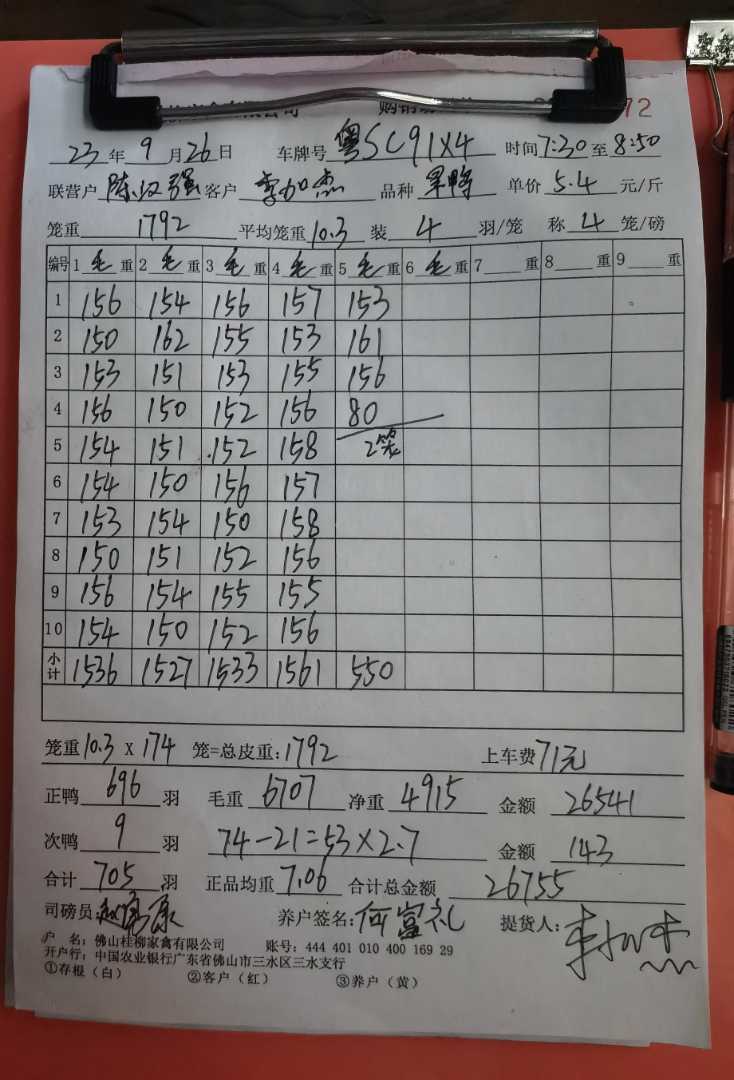 72
23年9月26日 车牌号 粤SC91X4 时间7:30至8:50
联营户 陈汉强 客户 李加杰 品种 旱鸭 单价 5.4 元/斤
笼重 1792 平均笼重 10.3 装 4 羽/笼 称 4 笼/磅
编号 1 毛 重 2 毛 重 3 毛 重 4 毛 重 5 毛 重 6 毛 重 7 重 8 重 9 重
1 156 154 156 157 153
2 150 162 155 153 161
3 153 151 153 155 156
4 156 150 152 156 80
5 154 151 152 158 2笼
6 154 150 156 157
7 153 154 150 158
8 150 151 152 156
9 156 154 155 155
10 154 150 152 156
小计 1536 1527 1533 1561 550
笼重 10.3 X 174 笼=总皮重:1792 上车费 71元
正鸭 696 羽 毛重 6707 净重 4915 金额 26541
次鸭 9 羽 74-21=53×2.7 金额 143
合计 705 羽 正品均重 7.06 合计总金额 26755
司磅员: 养户签名: 何富礼 提货人: 李加杰
户 名: 佛山桂柳家禽有限公司 账号: 444 401 010 400 169 29
开户行: 中国农业银行广东省佛山市三水区三水支行
①存根(白) ②客户(红) ③养户(黄)